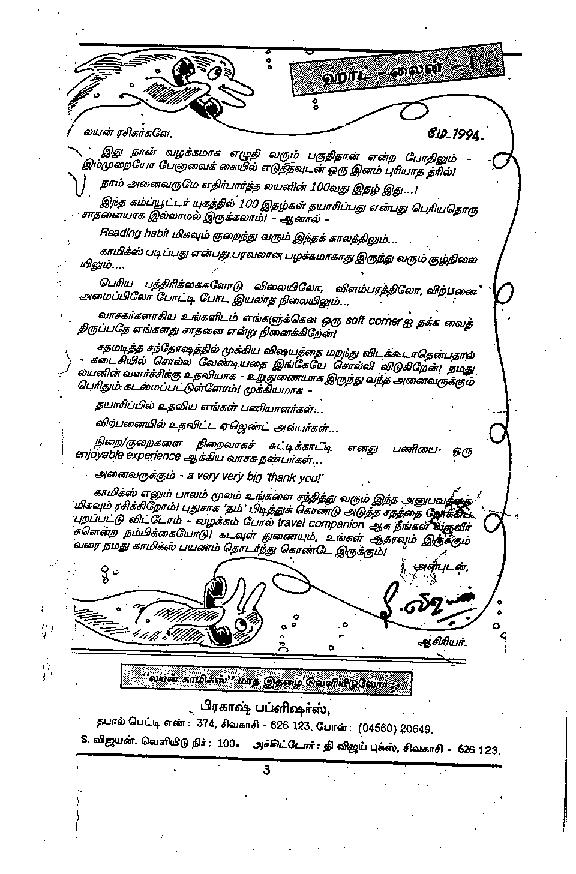 ஹாட் - லைன் -
லயன் ரசிகர்களே, மே.1994.
இது நான் வழக்கமாக எழுதி வரும் பகுதிதான் என்ற போதிலும் -
இம்முறையோ பேனாவைக் கையில் எடுத்தவுடன் ஒரு இனம் புரியாத த்ரில்!
நாம் அனைவருமே எதிர்பார்த்த லயனின் 100வது இதழ் இது...!
இந்த கம்ப்யூட்டர் யுகத்தில் 100 இதழ்கள் தயாரிப்பது என்பது பெரியதொரு
சாதனையாக இல்லாமல் இருக்கலாம்! - ஆனால் -
Reading habit மிகவும் குறைந்து வரும் இந்தக் காலத்திலும்...
காமிக்ஸ் படிப்பது என்பது பரவலான பழக்கமாகாது இருந்து வரும் சூழ்நிலை
யிலும்....
பெரிய பத்திரிக்கைகளோடு விலையிலோ, விளம்பரத்திலோ, விற்பனை
அமைப்பிலோ போட்டி போட இயலாத நிலையிலும்...
வாசகர்களாகிய உங்களிடம் எங்களுக்கென ஒரு soft cornerஐ தக்க வைத்
திருப்பதே எங்களது சாதனை என்று நினைக்கிறேன்!
சதமடித்த சந்தோஷத்தில் முக்கிய விஷயத்தை மறந்து விடக்கூடாதென்பதால்
- கடைசியில் சொல்ல வேண்டியதை இங்கேயே சொல்லி விடுகிறேன்! நமது
லயனின் வளர்ச்சிக்கு உதவியாக - உறுதுணையாக இருந்து வந்த அனைவருக்கும்
பெரிதும் கடமைப்பட்டுள்ளோம்! முக்கியமாக -
தயாரிப்பில் உதவிய எங்கள் பணியாளர்கள்...
விற்பனையில் உதவிட்ட ஏஜெண்ட் அன்பர்கள்...
நிறை/குறைகளை நிறைவாகச் சுட்டிக்காட்டி எனது பணியை ஒரு
enjoyable experience ஆக்கிய வாசக நண்பர்கள்...
அனைவருக்கும் - a very very big 'thank you'!
காமிக்ஸ் எனும் பாலம் மூலம் உங்களை சந்தித்து வரும் இந்த அனுபவத்தை
மிகவும் ரசிக்கிறோம்! புதுசாக 'தம்' பிடித்துக் கொண்டு அடுத்த சதத்தை நோக்கிப்
புறப்பட்டு விட்டோம் - வழக்கம் போல் travel companion ஆக நீங்கள் வருவீர்
களென்ற நம்பிக்கையோடு! கடவுள் துணையும், உங்கள் ஆதரவும் இருக்கும்
வரை நமது காமிக்ஸ் பயணம் தொடர்ந்து கொண்டே இருக்கும்!
அன்புடன்,
ஆசிரியர்.
"லயன் காமிக்ஸ்" மாத இதழை வெளியிடுவோர்:
பிரகாஷ் பப்ளிஷர்ஸ்,
தபால் பெட்டி எண்: 374, சிவகாசி - 626 123. போன்: (04560) 20649.
S. விஜயன். வெளியீடு நிர்: 100. அச்சிட்டோர்: தி விஜய் புக்ஸ், சிவகாசி - 626 123.
3